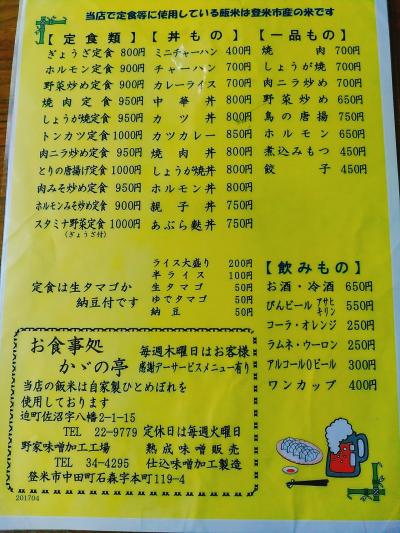 当店で定食等に使用している飯米は登米市産の米です
【定食類】
ぎょうざ定食 800円
ホルモン定食 900円
野菜炒め定食 900円
焼肉定食 950円
しょうが焼定食 950円
トンカツ定食 1000円
肉ニラ炒め定食 950円
とりの唐揚げ定食 1000円
肉みそ炒め定食 950円
ホルモンみそ炒め定食 900円
スタミナ野菜定食 1000円
(ぎょうざ付)
【丼もの】
ミニチャーハン 400円
チャーハン 700円
カレーライス 700円
中華丼 800円
カツ丼 800円
カツカレー 850円
焼肉丼 800円
しょうが焼丼 800円
ホルモン丼 800円
親子丼 750円
あぶら麩丼 750円
【一品もの】
焼肉 700円
しょうが焼 700円
肉ニラ炒め 700円
野菜炒め 650円
鳥の唐揚 750円
ホルモン 650円
煮込みもつ 450円
餃子 450円
定食は生タマゴか
納豆付です
ライス大盛り 200円
半ライス 100円
生タマゴ 50円
ゆでタマゴ 50円
納豆 50円
【飲みもの】
お酒・冷酒 650円
びんビール アサヒ キリン 550円
コーラ・オレンジ 250円
ラムネ・ウーロン 250円
アルコール0ビール 300円
ワンカップ 400円
お食事処
かゞの亭
毎週木曜日はお客様
感謝デーサービスメニュー有り
当店の飯米は自家製ひとめぼれを
使用しております
迫町佐沼字八幡2-1-15
TEL 22-9779 定休日は毎週火曜日
野家味噌加工工場 熟成味噌販売
TEL 34-4295 仕込味噌加工製造
登米市中田町石森字本町119-4
201704